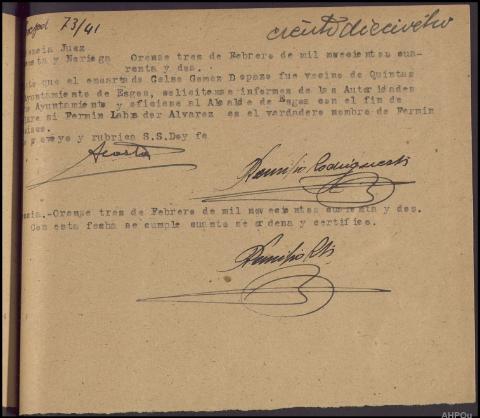 73/41
ciento dieciocho
encia Juez
osta y Noriega Orense tres de Febrero de mil novecientos cua-
renta y dos. .
sto que el encartado Celso Gomez Dopazo fue vecino de Quintas
yuntamiento de Esgos, solicitense informes de las Autoridades
Ayuntamiento y oficiese al Alcalde de Esgos con el fin de
are si Fermin Labrador Alvarez es el verdadero nombre de Fermin
proveyo y rubrica S.S. Doy fe
Acosta
Remigio Rodriguez
ncia.-Orense tres de Febrero de mil novecientos cuarenta y dos.
Con esta fecha se cumple cuanto se ordena y certifico.
Remigio
AHPOu